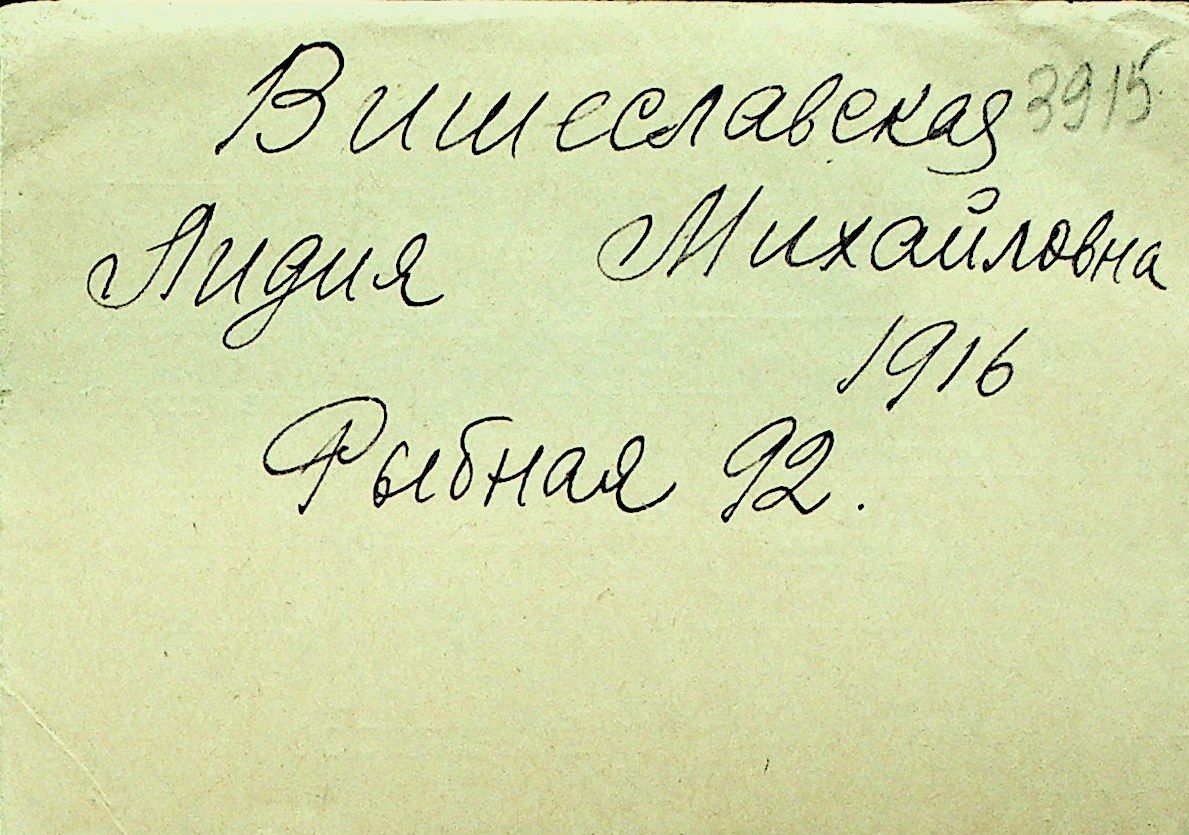 Вишеславская 3915
Лидия Михайловна
1916
Рыбная 92.